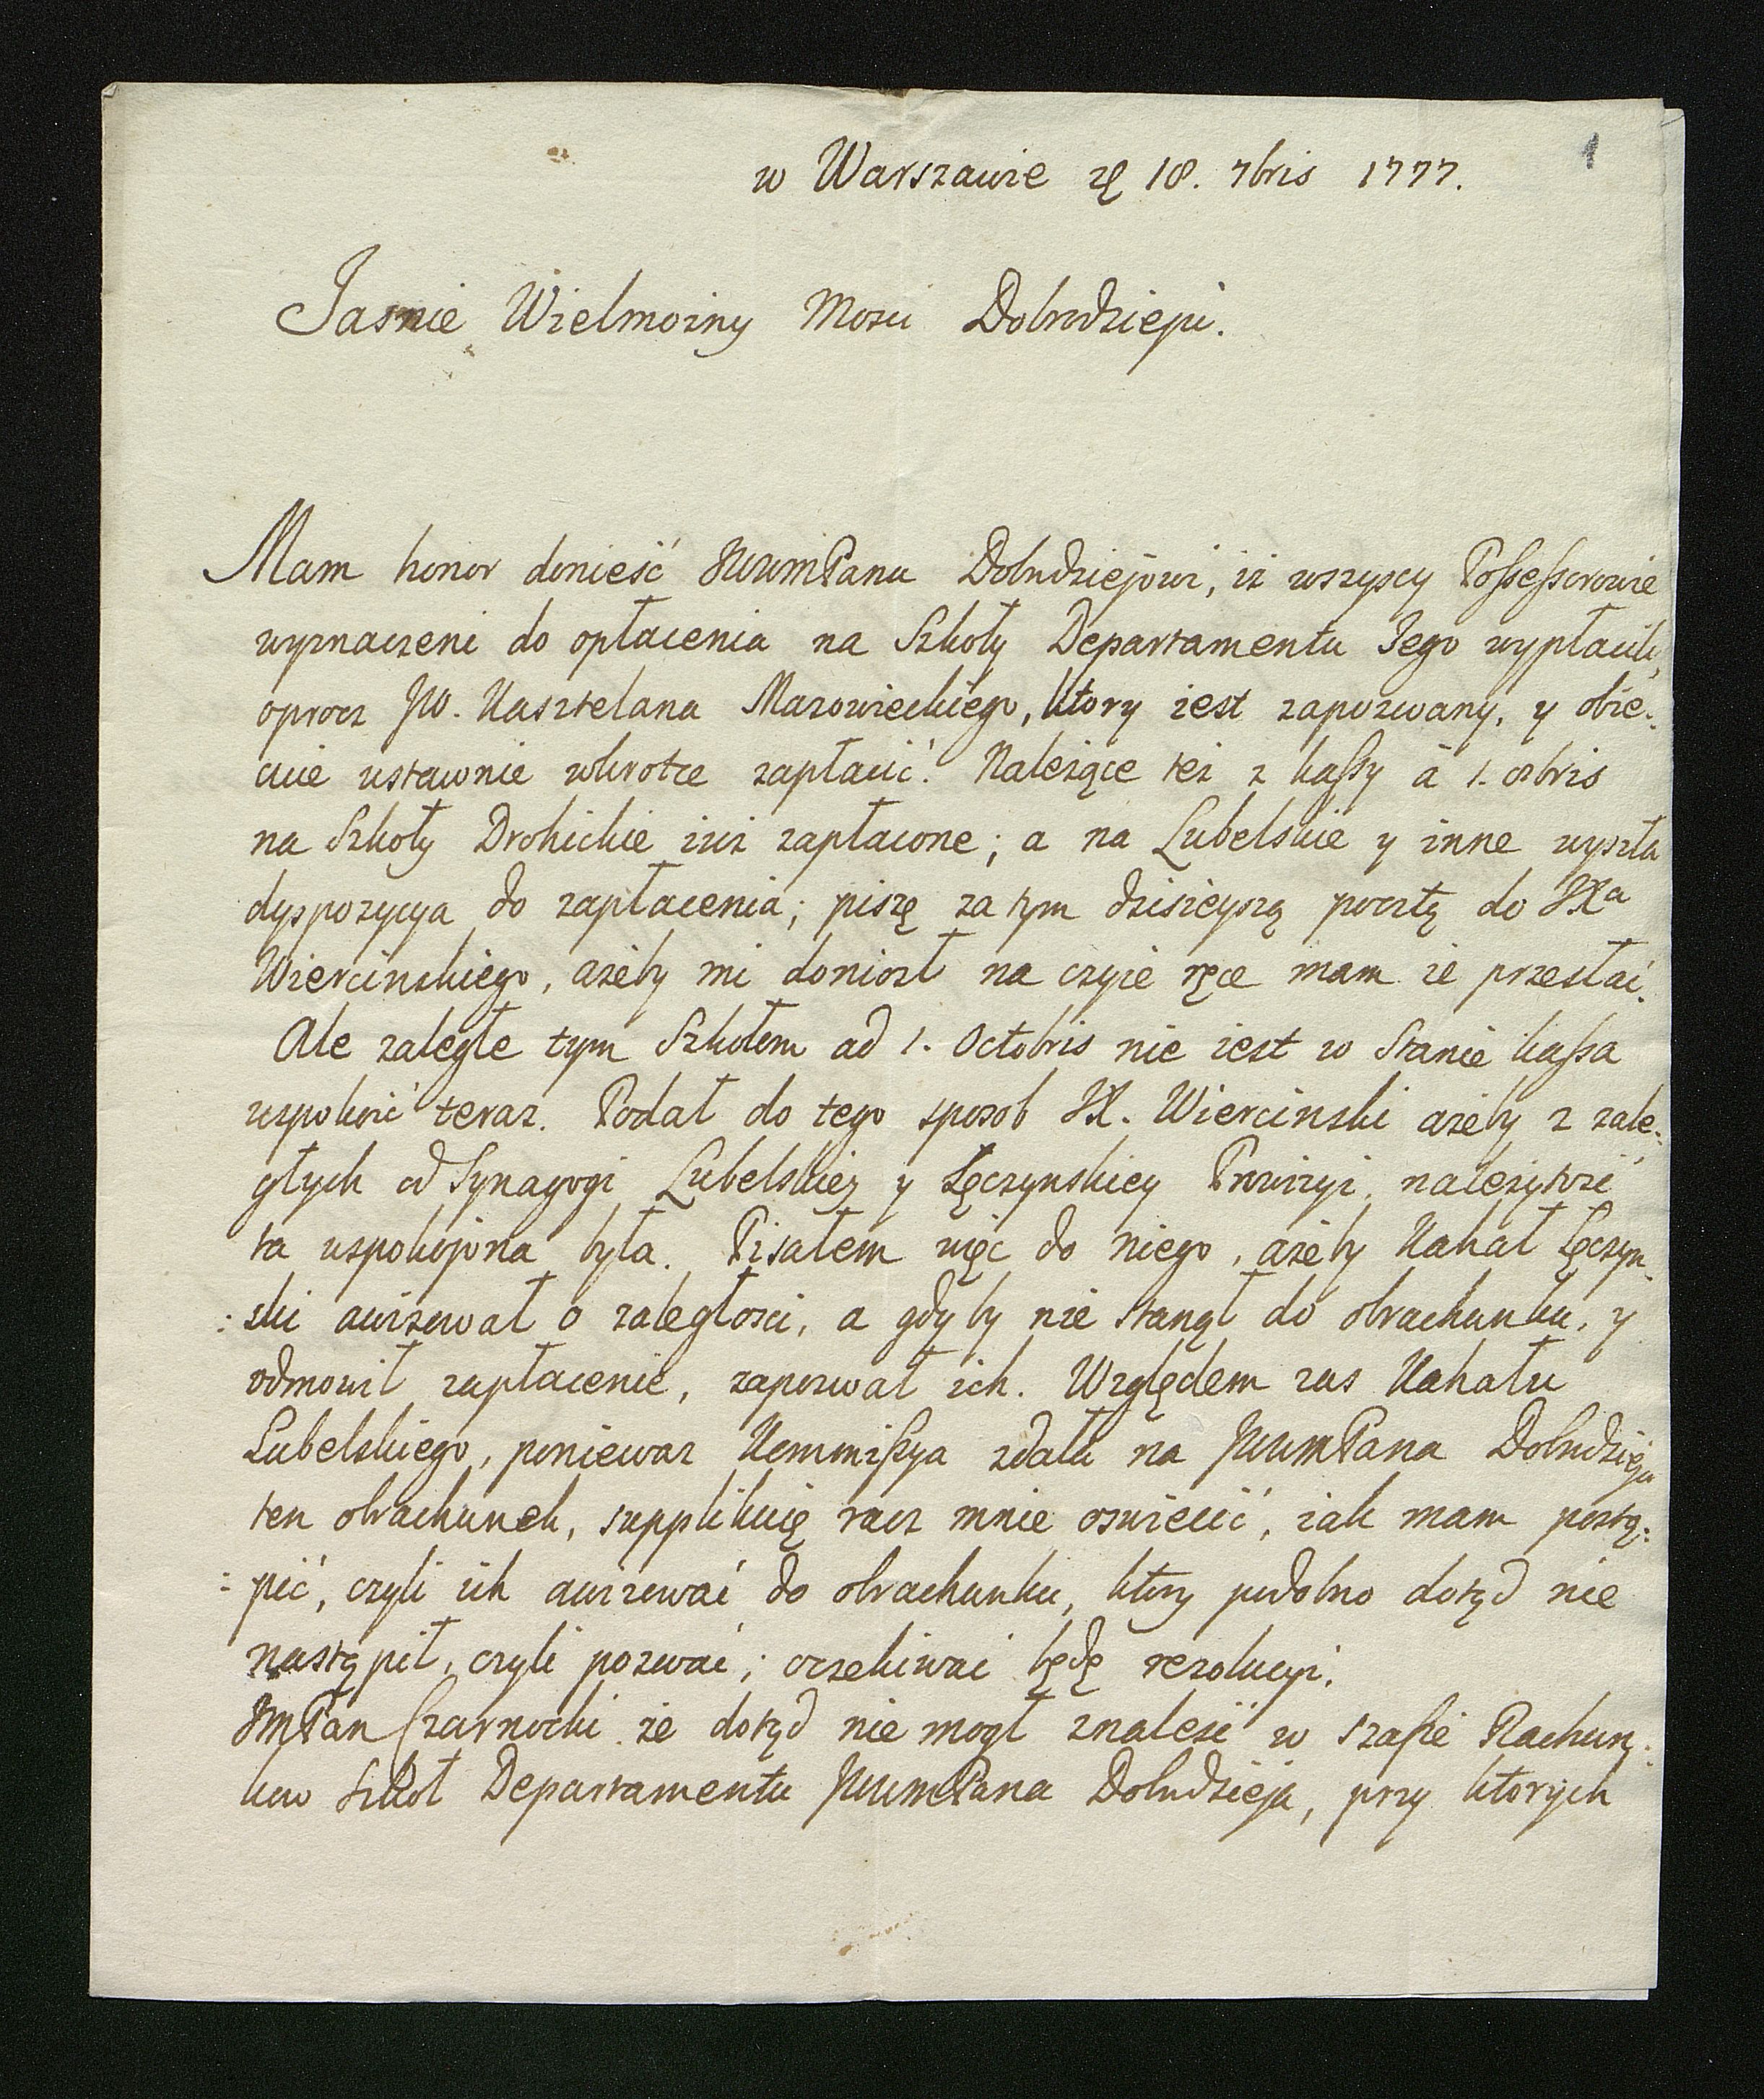 1
w Warszawie 18. 7bris 1777.
Jasnie Wielmozny Mosci Dobrodzieju.
Mam honor donieść JWWmPanu Dobrodziejowi, iz wszyscy Possessorowie
wyznaczeni do opłacenia na Szkoły Departamentu Jego wypłacili,
oprocz JW. Kasztelana Mazowieckiego, ktory iest zapozwany, y obie-
cuie ustawnie wkrotce zapłacić. Należące też z kassy à 1. 8bris
na Szkoły Drohickie iuz zapłacone; a na Lubelskie y inne wyszła
dyspozycya do zapłacenia; piszę za tym dzisieyszą pocztą do JXa
Wiercinskiego, ażeby mi doniosł na czyie ręce mam ie przesłać.
Ale zaległe tym Szkołom ad 1. Octobris nie iest w stanie kassa
uspokoić teraz. Podał do tego sposob JX. Wiercinski ażeby z zale-
głych od Synagogi Lubelskiey y Łęczynskiey Prowizyi, należytość
ta uspokojona była. Pisałem więc do niego, ażeby Kahał Łęczyn-
:ski awizował o zaległosci, a gdyby nie stanął do obrachunku, y
odmowił zapłacenie, zapozwał ich. Względem zas Kahału
Lubelskiego, poniewaz Kommissya zdała na JWWmPana Dobrodzieja
ten obrachunek, supplikuię racz mnie oswiecić, iak mam postą-
:pić, czyli ich awizować do obrachunku, ktory podobno dotąd nie
nastąpił, czyli pozwać; oczekiwać będę rezolucyi.
JmPan Czarnocki że dotąd nie mogł znaleść w szafie Rachun-
kow Szkoł Departamentu JWWmPana Dobrodzieja, przy ktorych